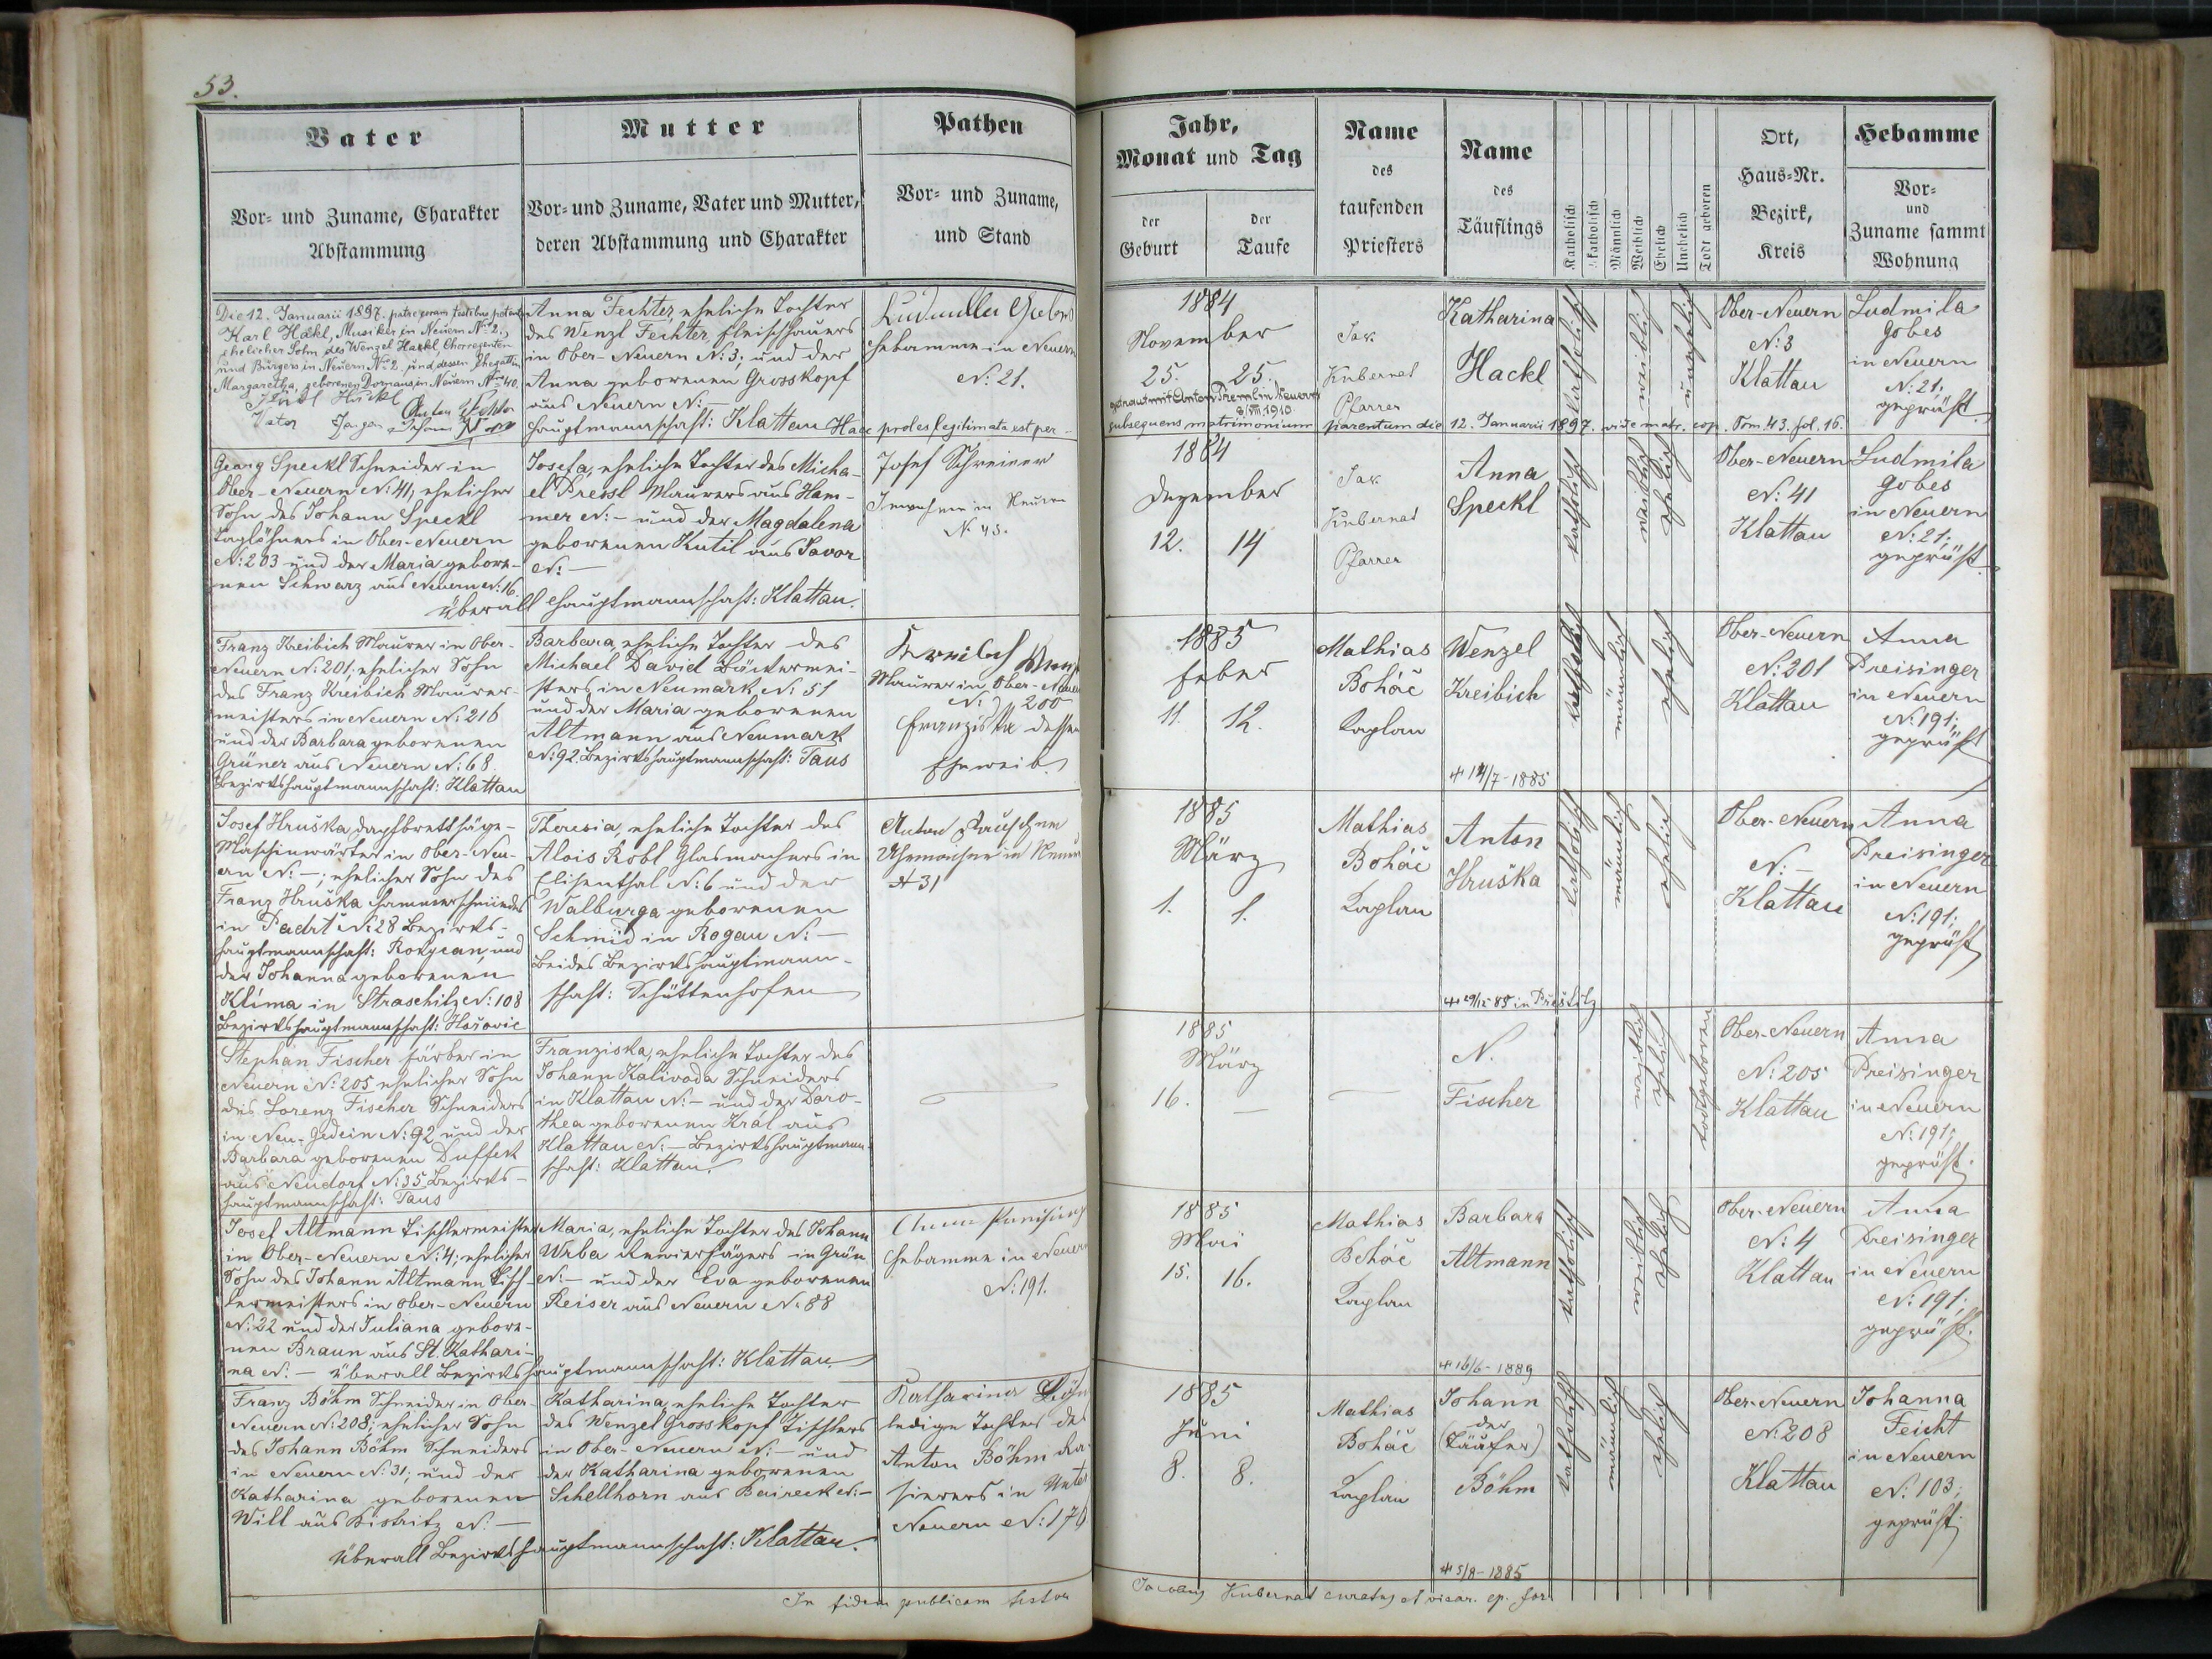 53.
Vater
Vor- und Zuname, Charakter
Abstammung
Mutter
Vor- und Zuname, Vater und Mutter,
deren Abstammung und Charakter
Pathen
Vor- und Zuname,
und Stand
Die 12. Januarii 1897.
Karl Hackl, Musiker in Neuern No 2.,
ehelicher Sohn des Wenzel Hackl, Chorregenten
und Bürgers in Neuern No 2 und dessen Ehegattin
Margaretha, geborenen Domans in Neuern No 40.
Vater
Anna Fechter, eheliche Tochter
des Wenzl Fechter, Fleischhauers
in Ober-Neuern N: 3, und der
Anna geborenen Grosskopf
aus Neuern N: –
Hauptmannschaft: Klattau
Hebamme in Neuern
N: 21.
Haec proles legitimata est per
Georg Speckl Schneider in
Ober-Neuern N: 41, ehelicher
Sohn des Johann Speckl
Taglöhners in Ober-Neuern
N: 203 und der Maria gebore-
nen Schwarz aus Neuern N: 16.
Josefa, eheliche Tochter des Micha-
el Pressl Maurers aus Ham-
mer N: – und der Magdalena
geborenen Kutil aus Javor
N: –
überall Hauptmannschaft: Klattau.
Josef Schreiner
Inwohner in Neuern
N 43.
Franz Kreibich Maurer in Ober-
Neuern N: 201, ehelicher Sohn
des Franz Kreibich Maurer-
meisters in Neuern N: 216
und der Barbara geborenen
Grüner aus Neuern N: 68.
Bezirkshauptmannschaft: Klattau
Barbara, eheliche Tochter des
Michael David Bäckermei-
sters in Neumark N: 51
und der Maria geborenen
Altmann aus Neumark
N: 92. Bezirkshauptmannschaft: Taus
Kreibich
Maurer in Ober-Neuern
N: 200
Franziska dessen
Eheweib
Josef Hruška, Dampfbrettsäge-
Maschinwärter in Ober-Neu-
ern N: –; ehelicher Sohn des
Franz Hruška Hammerschmiedes
in Padrť N: 28 Bezirks-
hauptmannschaft: Rokycan, und
der Johanna geborenen
Klíma in Straschitz N: 108
Bezirkshauptmannschaft: Hořovic
Theresia, eheliche Tochter des
Alois Kobl Glasmachers in
Elisenthal N: 6 und der
Walburga geborenen
Schmid in Rogau N: –
Beides Bezirkshauptmann-
schaft: Schüttenhofen
Anton
Uhrmacher in Neuern
N 31
Stephan Fischer Färber in
Neuern N: 205 ehelicher Sohn
des Lorenz Fischer Schneiders
in Neu-Gedein N: 92 und der
Barbara geborenen Duffek
aus Neudorf N: 35 Bezirks-
hauptmannschaft: Taus
Franziska, eheliche Tochter des
Johann Kalivoda Schneiders
in Klattau N: – und der Doro-
thea geborenen Král aus
Klattau N: – Bezirkshauptmann-
schaft: Klattau.
Josef Altmann Tischlermeister
in Ober-Neuern N: 4; ehelicher
Sohn des Johann Altmann Tisch-
lermeisters in Ober-Neuern
N: 22 und der Juliana gebore-
nen Braun aus St. Kathari-
na N: –
Maria, eheliche Tochter des Johann
Wrba Revierjägers in Grün
N: – und der Eva geborenen
Reiser aus Neuern N: 88
überall Bezirkshauptmannschaft: Klattau.
Anna Preisinger
Hebamme in Neuern
N: 191.
Franz Böhm Schneider in Ober-
Neuern N: 208; ehelicher Sohn
des Johann Böhm Schneiders
in Neuern N: 31; und der
Katharina geborenen
Will aus Bistritz N: –
Katharina, eheliche Tochter
des Wenzel Grosskopf Tischlers
in Ober-Neuern N: – und
der Katharina geborenen
Schellhorn aus Baireck N: –
überall Bezirkshauptmannschaft: Klattau.
Katharina Böhm
ledige Tochter des
Anton Böhm
in Unter
Neuern N: 170
In fidem publicam testor
Jahr,
Monat und Tag
der
Geburt
der
Taufe
Name
des
taufenden
Priesters
Name
des
Täuflings
Katholisch
Akatholisch
Männlich
Weiblich
Ehelich
Unehelich
Todt geboren
Ort,
Haus-Nr.
Bezirk,
Kreis
Hebamme
Vor-
und
Zuname sammt
Wohnung
1884
November
25. 25.
getraut mit Anton Preml in Neuern
8/VIII. 1910
Jak.
Kubernat
Pfarrer
Katharina
Hackl
katholisch
weiblich
unehelich
Ober-Neuern
N: 3
Klattau
Ludmila
Gobes
in Neuern
N: 21;
geprüft.
subsequens matrimonium parentum die 12. Januarii 1897. vide matr. cop. Tom. 43. fol. 16.
1884
Dezember
12. 14
Jak.
Kubernat
Pfarrer
Anna
Speckl
katholisch
weiblich
ehelich
Ober-Neuern
N: 41
Klattau
Ludmila
Gobes
in Neuern
N: 21;
geprüft.
1885
Feber
11. 12.
Mathias
Boháč
Kaplan
Wenzel
Kreibich
+ 14/7-1885
katholisch
männlich
ehelich
Ober-Neuern
N: 201
Klattau
Anna
Preisinger
in Neuern
N: 191;
geprüft
1885
März
1. 1.
Mathias
Boháč
Kaplan
Anton
Hruška
+ 29/12 85 in Přestitz
katholisch
männlich
ehelich
Ober-Neuern
N: –
Klattau
Anna
Preisinger
in Neuern
N: 191;
geprüft
1885
März
16. –
–
N.
Fischer
weiblich
ehelich
todtgeboren
Ober-Neuern
N: 205
Klattau
Anna
Preisinger
in Neuern
N: 191;
geprüft.
1885
Mai
15. 16.
Mathias
Boháč
Kaplan
Barbara
Altmann
+ 16/6-1889
katholisch
weiblich
ehelich
Ober-Neuern
N: 4
Klattau
Anna
Preisinger
in Neuern
N: 191;
geprüft.
1885
Juni
8. 8.
Mathias
Boháč
Kaplan
Johann
der
(Täufer)
Böhm
+ 5/8-1885
katholisch
männlich
ehelich
Ober-Neuern
N: 208
Klattau
Johanna
Feicht
in Neuern
N: 103;
geprüft.
Jacobus Kubernat curatus et vicar. ep. for.